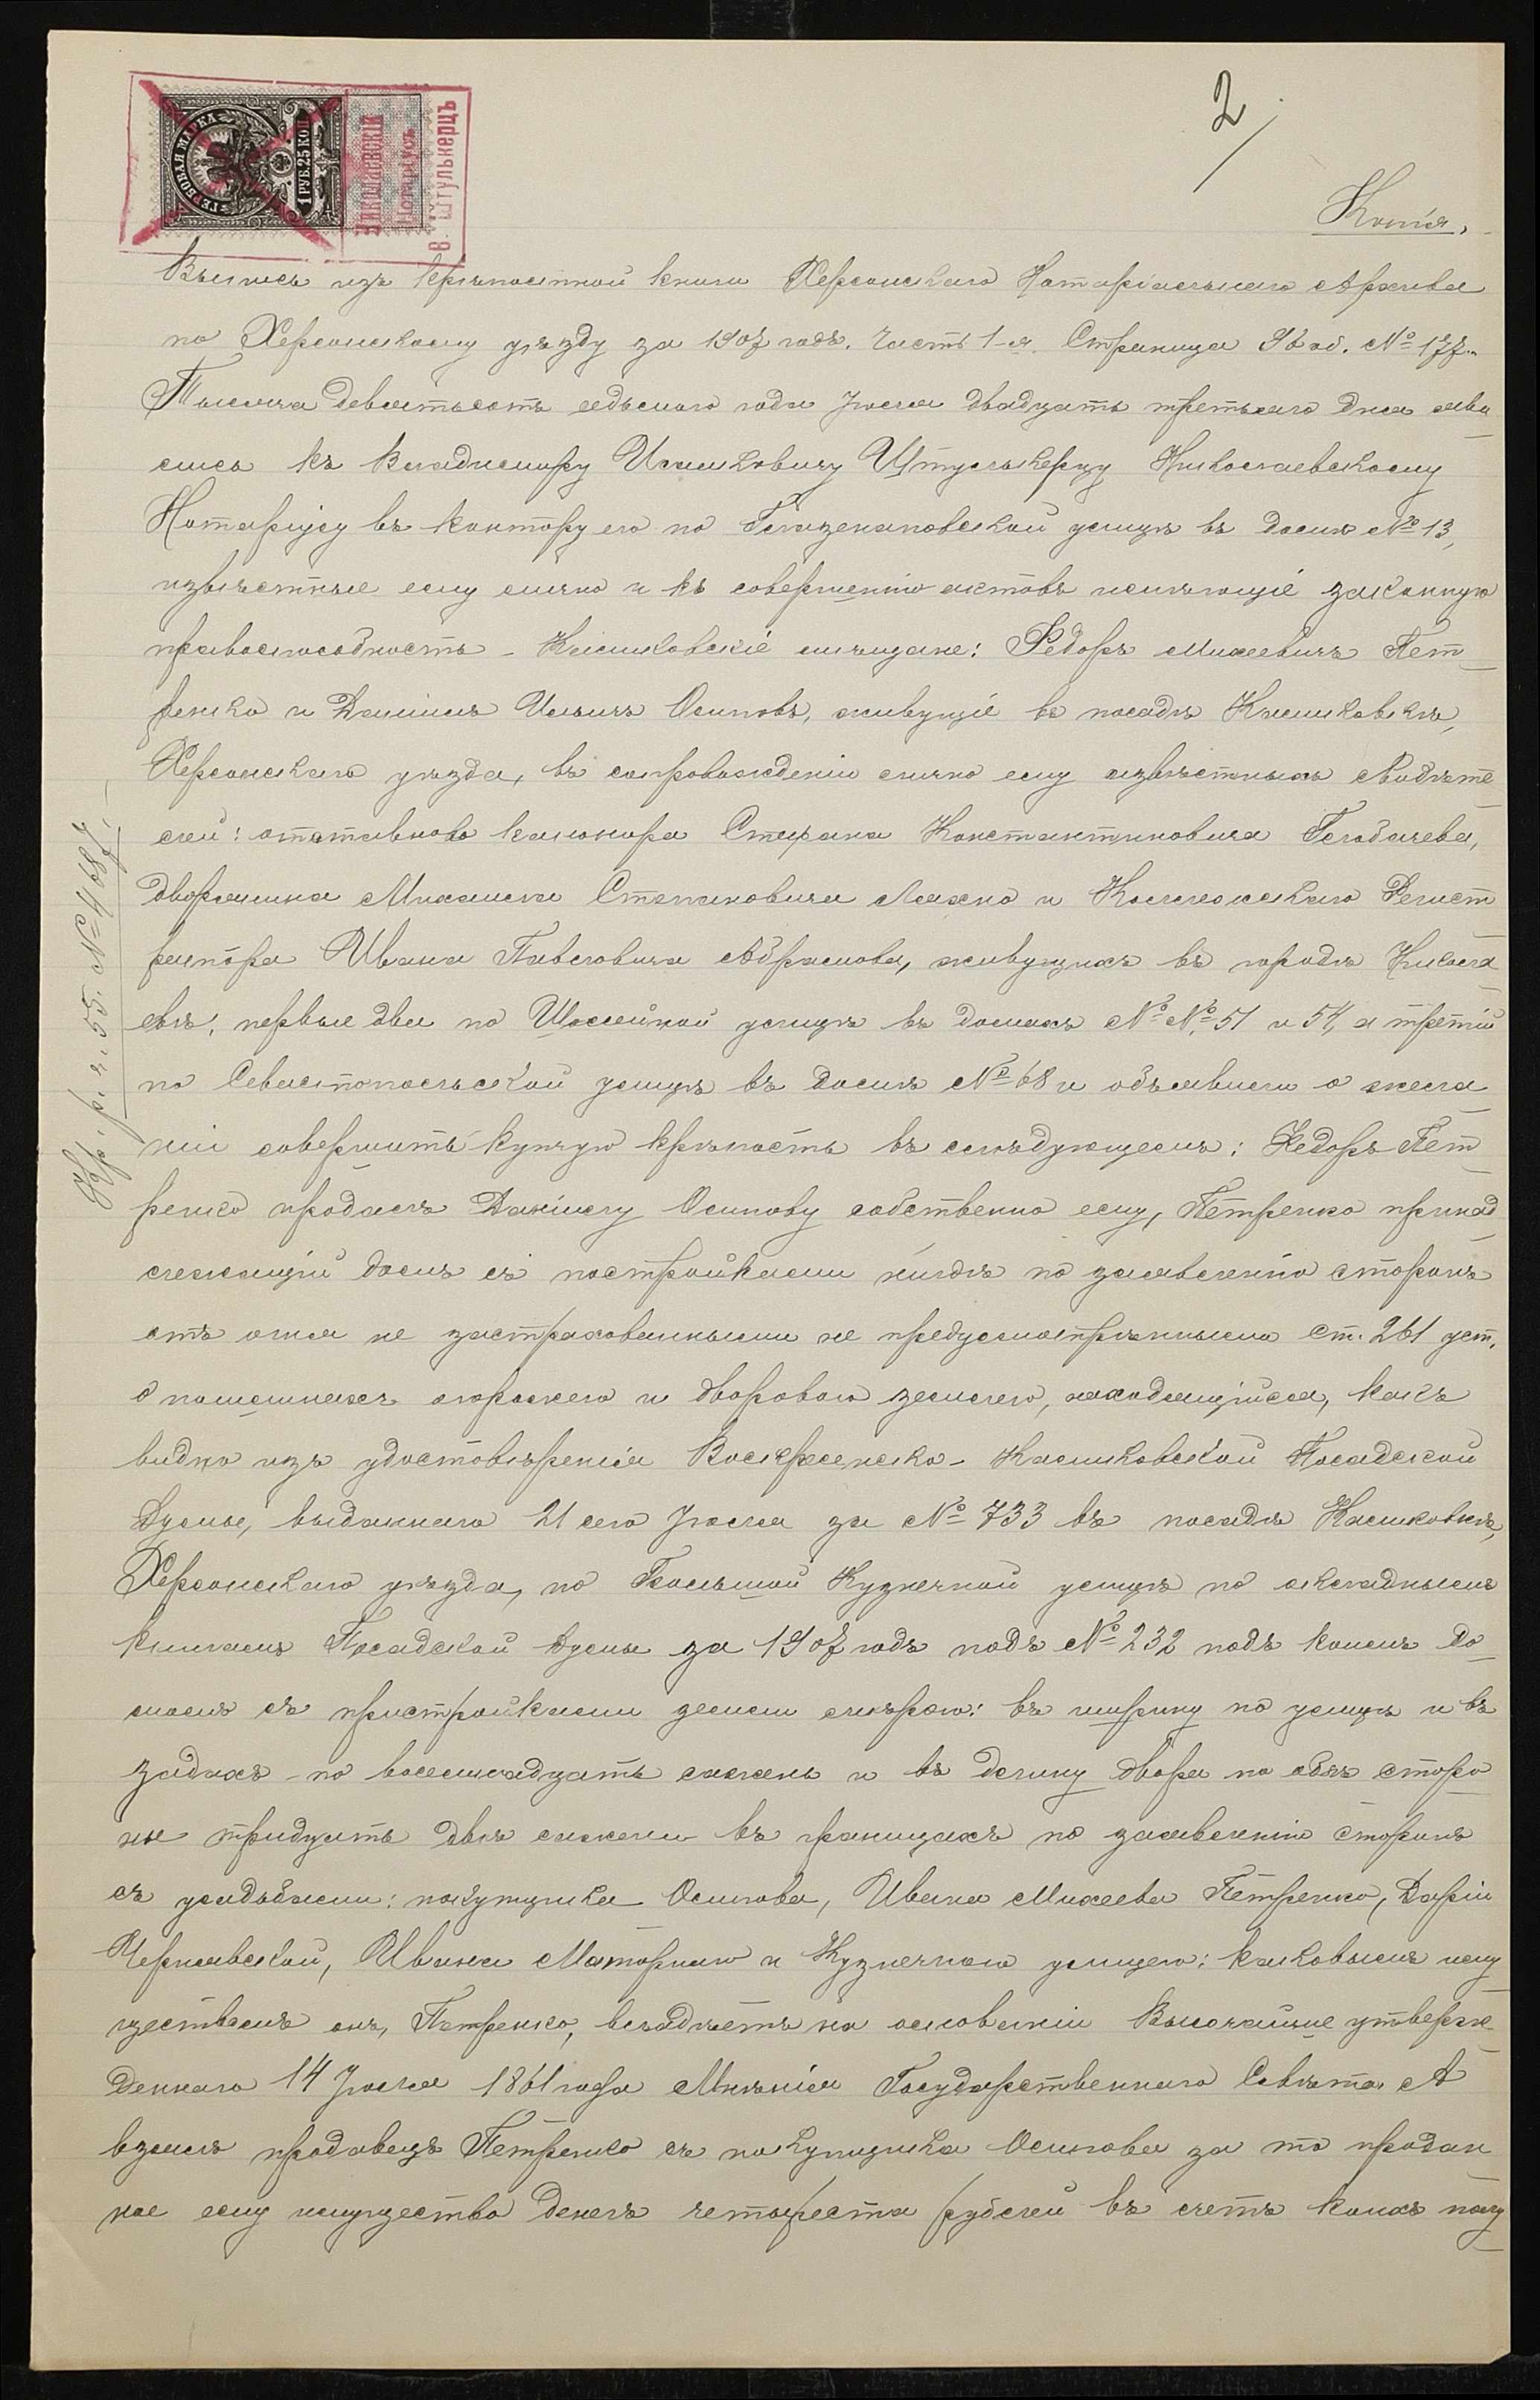 2
ГЕРБОВАЯ МАРКА
1 РУБ. 25 КОП.
Николаевскій
Нотаріусъ
В. Штулькерцъ
Копія.
Выпись изъ крѣпостной книги Херсонскаго Нотаріальнаго Архива
по Херсонскому уѣзду за 1907 годъ. Часть 1-я. Страница 96 об. № 177.
Тысяча девятьсотъ седьмого года Іюля двадцать третьяго дня яви
лись къ Владиміру Исаковичу Штулькерцу Николаевскому
Нотаріусу въ контору его по Глазенаповской улицѣ въ домѣ № 13,
извѣстные ему лично и къ совершенію актовъ имѣющіе законную
правоспособность - Калиновскіе мѣщане: Федоръ Михеевичъ Пет
ренко и Даніилъ Ильичъ Осиповъ, живущіе въ посадѣ Калиновкѣ,
Херсонскаго уѣзда, въ сопровожденіи лично ему извѣстныхъ свидѣте
лей: отставного канонира Стефана Константиновича Голобачева,
дворянина Михаила Степановича Лахно и Коллежскаго Регист
ратора Ивана Павловича Абрамова, живущихъ въ городѣ Никола
евѣ, первые два по Шоссейной улицѣ въ домахъ №№ 51 и 54, а третій
по Севастопольской улицѣ въ домѣ № 68 и объявили о жела
ніи совершить купчую крѣпость въ слѣдующемъ: Федоръ Пет
ренко продалъ Даніилу Осипову собственно ему, Петренко принад
лежащій домъ съ постройками нигдѣ по заявленію сторонъ
отъ огня не застрахованными не предусмотрѣнными ст. 261 уст.
о пошлинахъ огорожею и дворовою землею, находящійся, какъ
видно изъ удостовѣренія Воскресенско-Калиновской Посадской
Думы, выданнаго 21 сего Іюля за № 733 въ посадѣ Калиновкѣ,
Херсонскаго уѣзда, по Большой Кузнечной улицѣ по окладнымъ
книгамъ Посадской Думы за 1907 годъ подъ № 232 подъ коимъ до
момъ съ пристройками земли мѣрою: въ ширину по улицѣ и въ
задахъ - по восемнадцать сажень и въ длину двора по обѣ сторо
ны тридцать двѣ сажени въ границахъ по заявленію сторонъ
съ усадьбами: покупщика Осипова, Ивана Михеева Петренко, Даріи
Чернявской, Ивана Маторнаго и Кузнечною улицею: каковымъ иму
ществомъ онъ, Петренко, владѣетъ на основаніи Высочайше утверж
деннаго 14 Іюля 1861 года Мнѣнія Государственнаго Совѣта. А
взялъ продавецъ Петренко съ покупщика Осипова за то продан
ное ему имущество денегъ четыреста рублей въ счетъ коихъ полу
р. ч. 55. № 4687